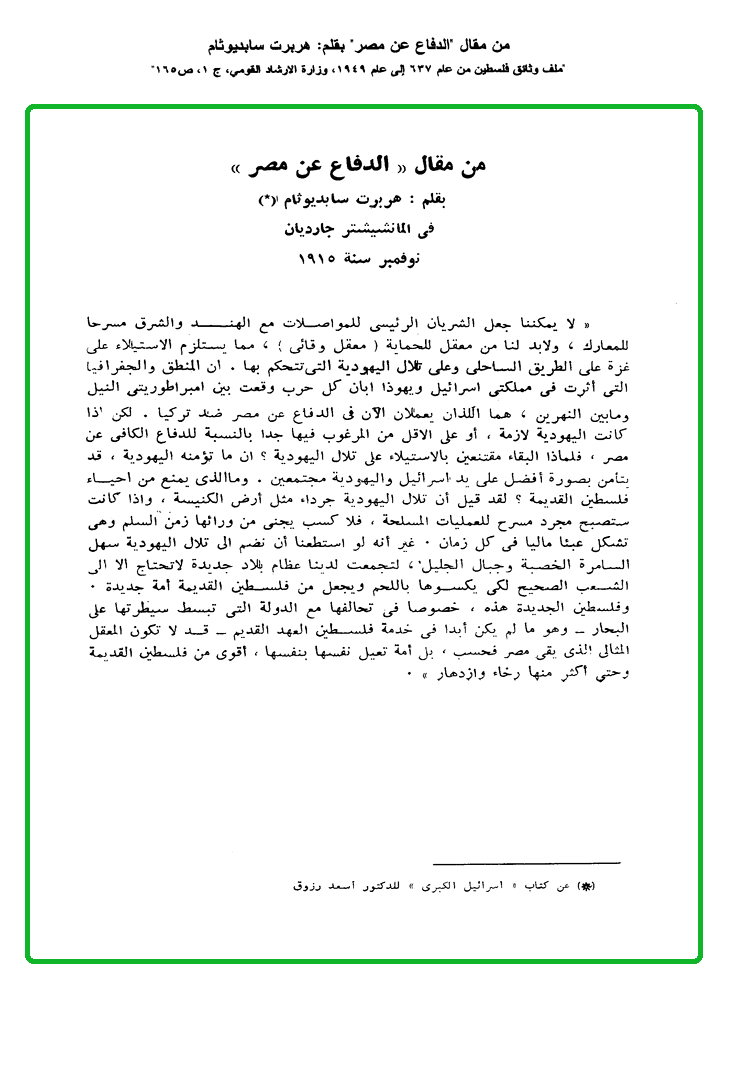 من مقال "الدفاع عن مصر" بقلم: هربرت سايديوثام
"ملف وثائق فلسطين من عام ٦٣٧ إلى عام ١٩٤٩، وزارة الارشاد القومي، ج ١، ص١٦٥"
من مقال « الدفاع عن مصر »
بقلم : هربرت سايديوثام (*)
فى المانشيشتر جارديان
نوفمبر سنة ١٩١٥
« لا يمكننا جعل الشريان الرئيسى للمواصلات مع الهند والشرق مسرحا
للمعارك ، ولابد لنا من معقل للحماية ( معقل وقائى ) ، مما يستلزم الاستيلاء على
غزة على الطريق الساحلى وعلى تلال اليهودية التى تتحكم بها . ان المنطق والجغرافيا
التى أثرت فى مملكتى اسرائيل ويهوذا ابان كل حرب وقعت بين امبراطوريتى النيل
ومابين النهرين ، هما اللذان يعملان الآن فى الدفاع عن مصر ضد تركيا . لكن اذا
كانت اليهودية لازمة ، أو على الاقل من المرغوب فيها جدا بالنسبة للدفاع الكافى عن
مصر ، فلماذا البقاء مقتنعين بالاستيلاء على تلال اليهودية ؟ ان ما تؤمنه اليهودية ، قد
يتأمن بصورة أفضل على يد اسرائيل واليهودية مجتمعين . وماالذى يمنع من احياء
فلسطين القديمة ؟ لقد قيل أن تلال اليهودية جرداء مثل أرض الكنيسة ، واذا كانت
ستصبح مجرد مسرح للعمليات المسلحة ، فلا كسب يجنى من ورائها زمن السلم وهى
تشكل عبئا ماليا فى كل زمان . غير أنه لو استطعنا أن نضم الى تلال اليهودية سهل
السامرة الخصبة وجبال الجليل ، لتجمعت لدينا عظام بلاد جديدة لاتحتاج الا الى
الشعب الصحيح لكى يكسوها باللحم ويجعل من فلسطين القديمة أمة جديدة .
وفلسطين الجديدة هذه ، خصوصا فى تحالفها مع الدولة التى تبسط سيطرتها على
البحار ــ وهو ما لم يكن أبدا فى خدمة فلسطين العهد القديم ــ قد لا تكون المعقل
المثالى الذى يقى مصر فحسب ، بل أمة تعيل نفسها بنفسها ، أقوى من فلسطين القديمة
وحتي أكثر منها رخاء وازدهار » .
(*) عن كتاب « اسرائيل الكبرى » للدكتور أسعد رزوق